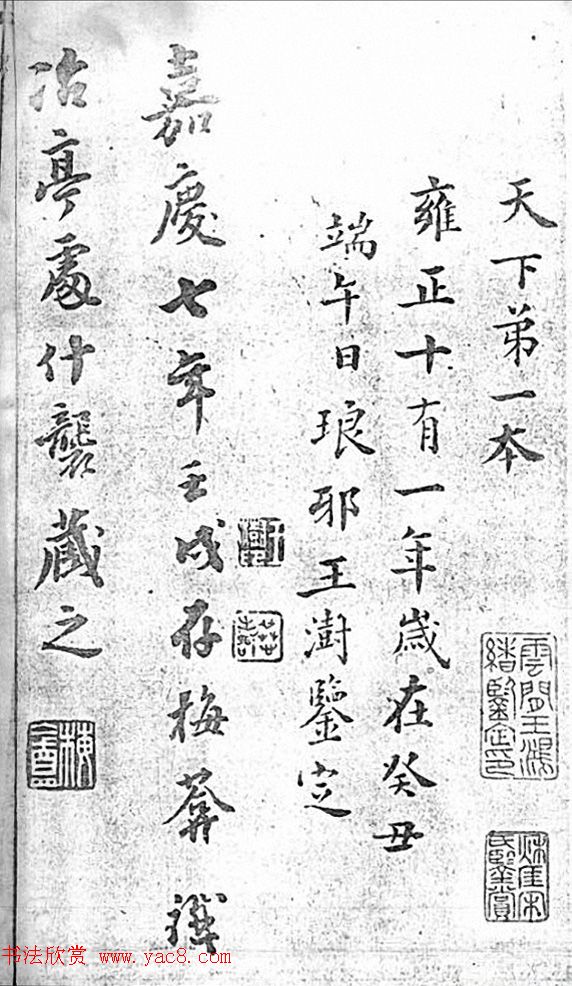 天下弟一本
雲間王鴻緒鑒定印
雍正十有一年歲在癸丑
端午日琅邪王澍鑒定
嘉慶七年壬戌存梅葊鐵
冶亭處什襲藏之
书法欣赏 www.yac8.com